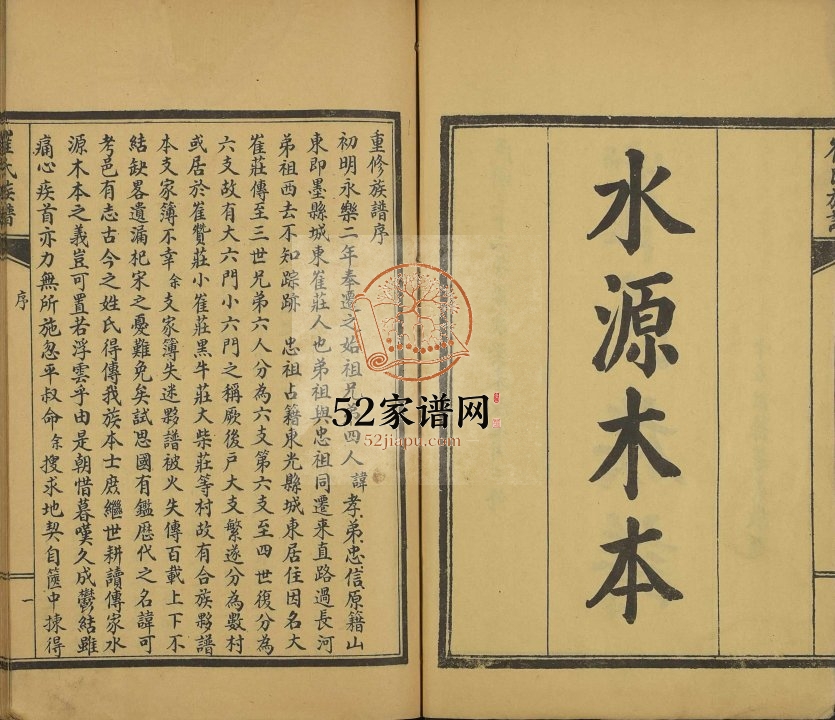 水源木本
重修族譜序
初明永樂二年奉遷之始祖兄弟四人諱孝弟忠信原籍山
東即墨縣城東崔莊人也弟祖與忠祖同遷来直路過長河
弟祖西去不知踪跡忠祖占籍東光縣城東居住因名大
崔莊傳至三世兄弟六人分為六支第六支至四世復分為
六支故有大六門小六門之稱厥後戸大支繁遂分為數村
或居於崔贊莊小崔莊黑牛莊大柴莊等村故有合族夥譜
本支家簿不幸余支家簿失迷夥譜被火失傳百載上下不
結缺畧遺漏杞宋之憂難免矣試思國有鑑歴代之名諱可
考邑有志古今之姓氏得傳我族本士庶繼世耕讀傳家水
源木本之義豈可置若浮雲乎由是朝惜暮嘆久成鬱結雖
痛心疾首亦力無所施忽平叔命余搜求地契自篋中揀得
崔氏族譜
序
一
52家谱网
52jiapu.com